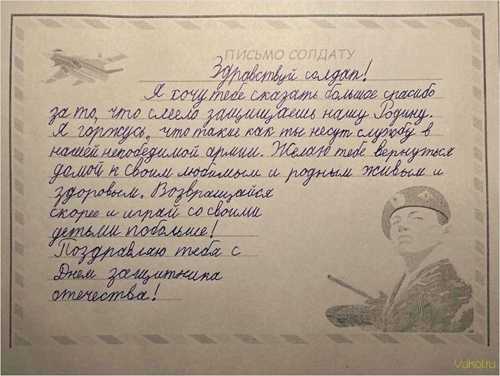 ПИСЬМО СОЛДАТУ
Здравствуй солдат!
Я хочу тебе сказать большое спасибо
за то, что смело защищаешь нашу Родину.
Я горжусь, что такие как ты несут службу в
нашей непобедимой армии. Желаю тебе вернуться
домой к своим любимым и родным живым и
здоровым. Возвращайся
скорее и играй со своими
детьми побольше!
Поздравляю тебя с
Днем защитника
отечества!
Vukol.ru